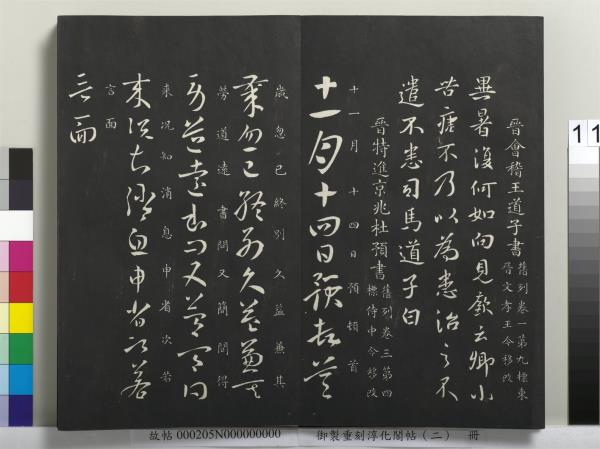 晉會稽王道子書 舊列卷一第九標東
晉文孝王今移改
異暑復何如向見廞云卿小
苦瘧不乃以為患治之不
遣不悉司馬道子白
晉特進京兆杜預書 舊列卷三第四
標侍中今移改
十一月十四日預頓首
十一月十四日預頓首
歲忽已終別久益兼其
歲忽已終別久益兼其
勞道遠書問又簡間得
勞道遠書問又簡間得
來況知消息申省次若
來況知消息申省次若
言面
言面
故帖 000205N000000000 御製重刻淳化閣帖(二) 冊
11